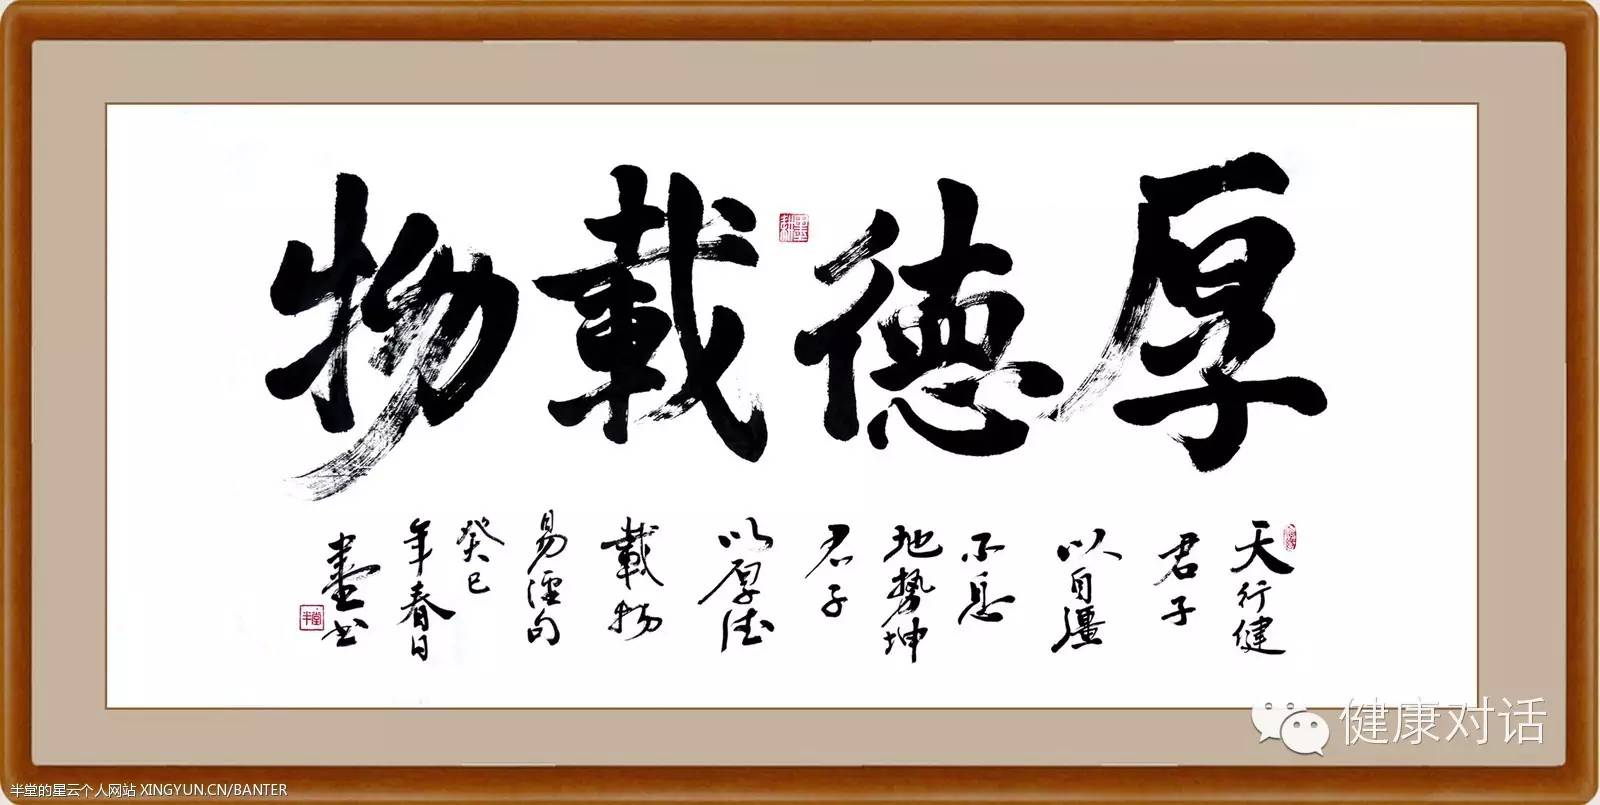 厚德載物
天行健
君子
以自彊
不息
地勢坤
君子
以厚德
載物
易經句
癸巳
年春日
書
半堂
健康对话
半堂的星云个人网站 XINGYUN.CN/BANTER